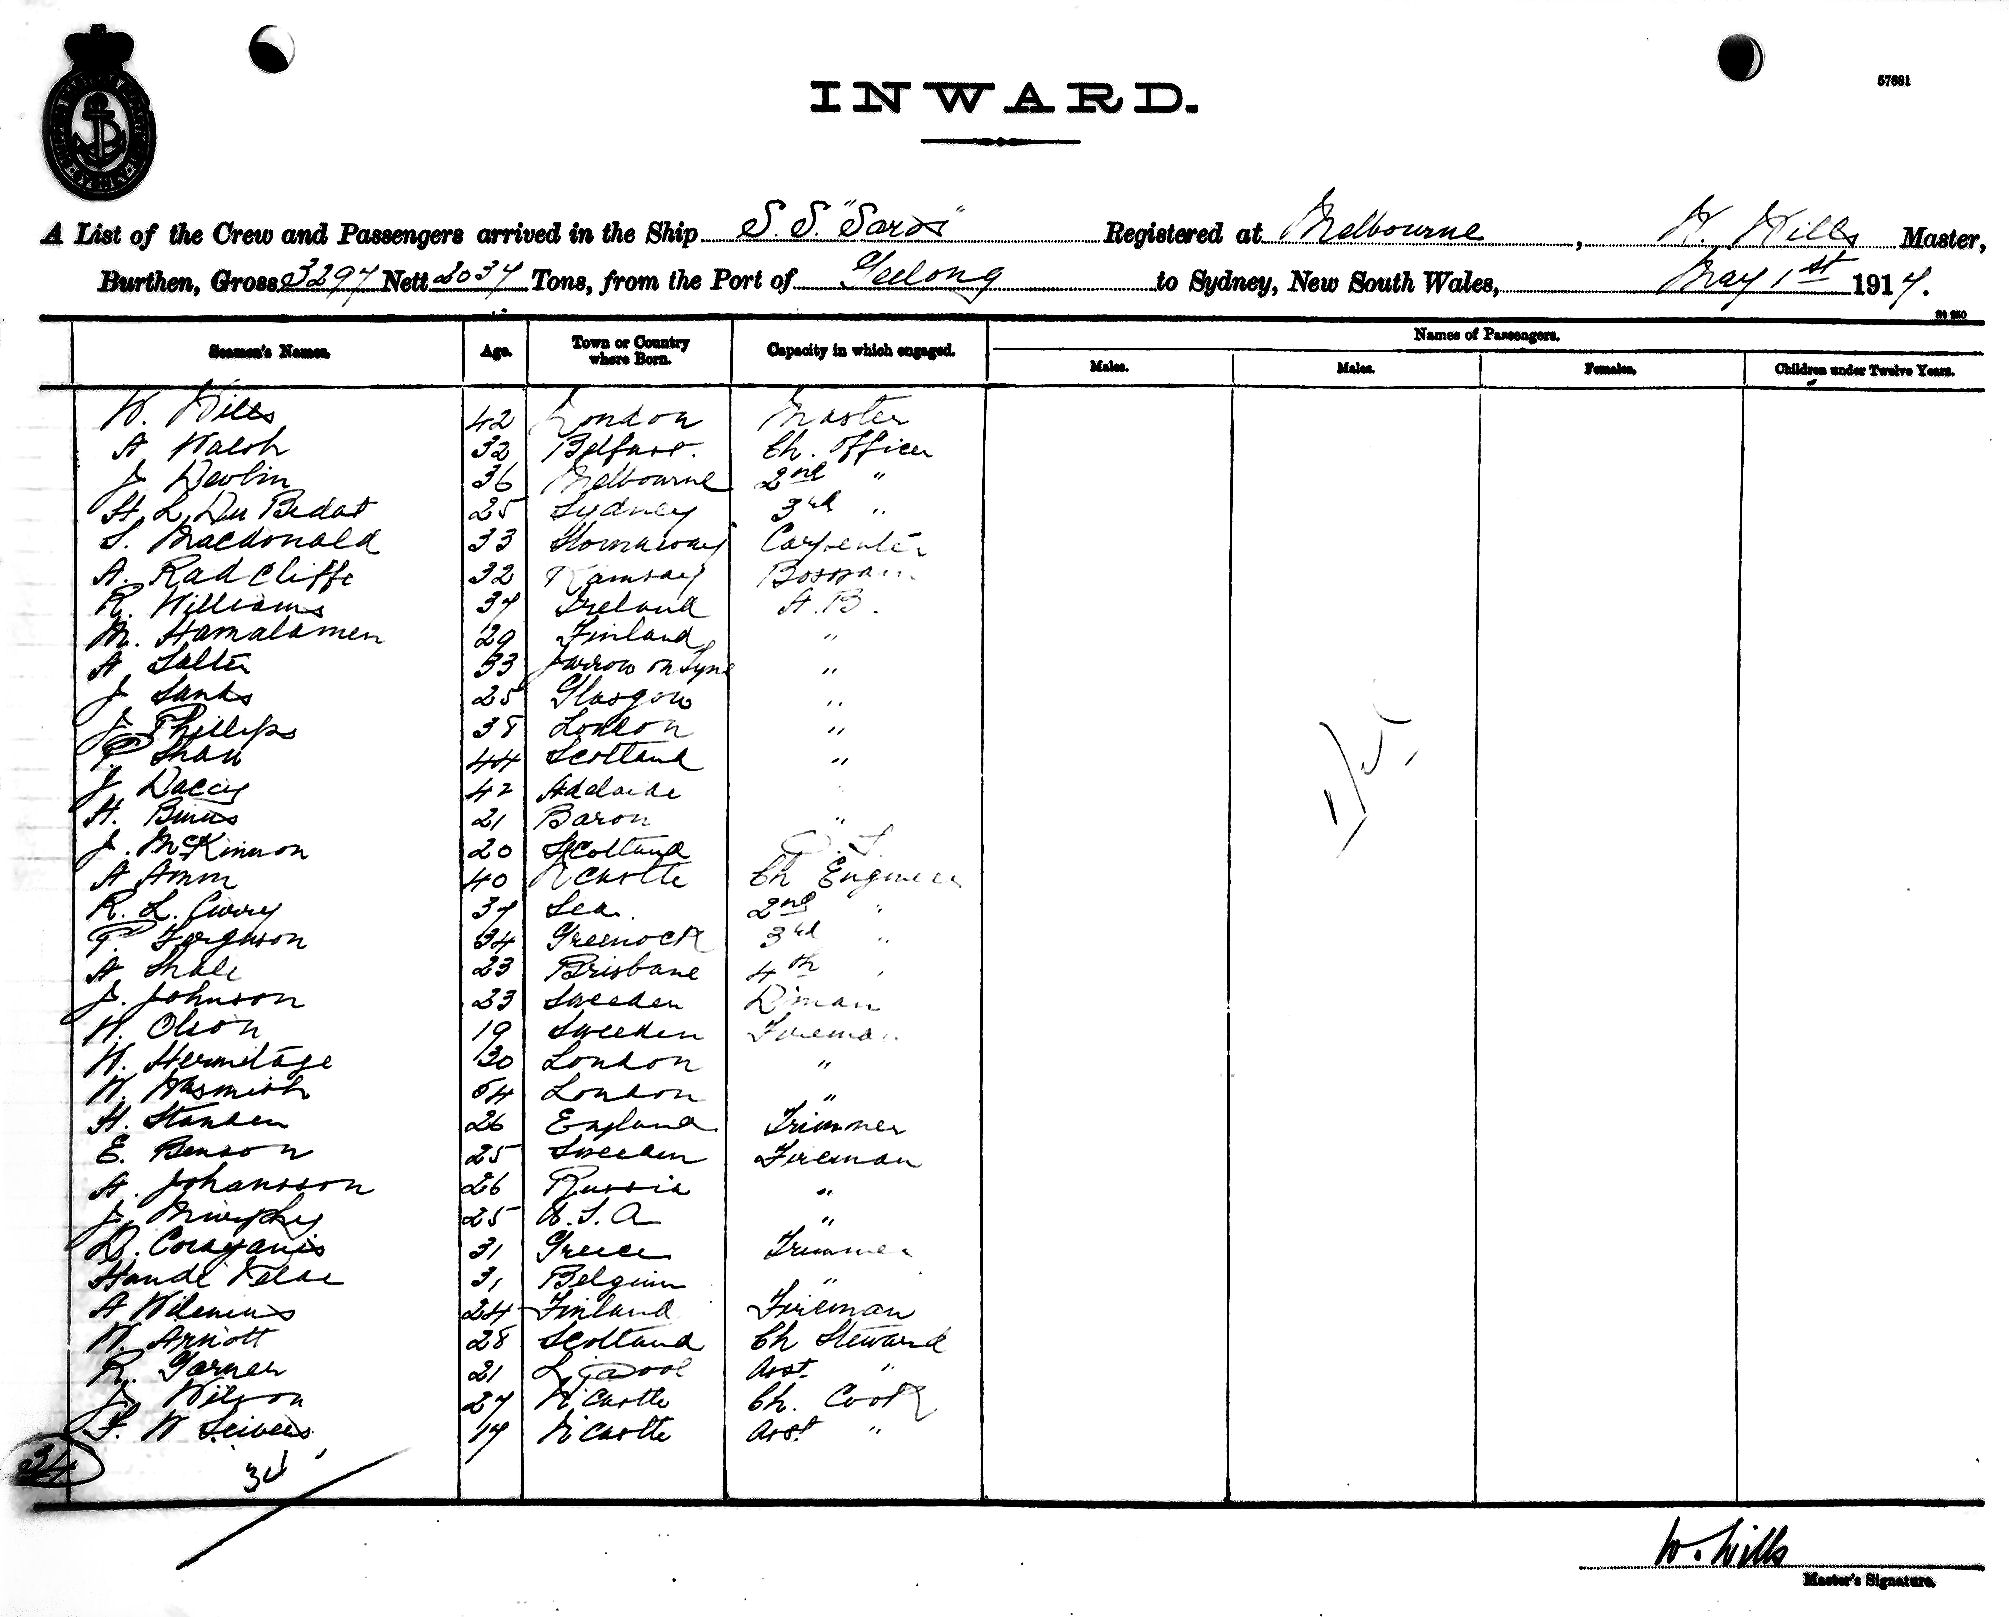 57681
INWARD.
A List of the Crew and Passengers arrived in the Ship S.S. "Soros" Registered at Melbourne, W. Wills Master,
Burthen, Gross 3297 Nett 2037 Tons, from the Port of Geelong to Sydney, New South Wales, May 1st 1914.
Seamen's Names. Age. Town or Country where Born. Capacity in which engaged. Names of Passengers.
Males. Males. Females. Children under Twelve Years.
W. Wills 42 London Master
A Walsh 32 Belfast. Ch. Officer
J Devlin 36 Melbourne 2nd "
H. L. Du Bedat 25 Sydney 3rd "
S. Macdonald 33 Stornaway Carpenter
A. Radcliffe 32 Ramsay Bosoan
R. Williams 37 Ireland A.B.
M. Hamalamen 29 Finland "
A Salter 33 Jarrow on Tyne "
J Sands 25 Glasgow "
J Phillips 38 London "
P. Shaw 44 Scotland "
J Dacey 42 Adelaide
H. Binns 21 Baron "
J. McKinnon 20 Scotland O.S.
A Amm 40 N'Castle Ch Engineer
R. L. 37 Sea. 2nd "
T. Ferguson 34 Greenock 3rd "
A Shale 23 Brisbane 4th "
J. Johnson 23 Sweeden D'man
W. Olson 19 Sweeden Fireman
W. Hermitage 30 London "
W. 54 London "
H. Standen 26 England Trimmer
E. Benson 25 Sweeden Fireman
A. Johansson 26 Russia "
J. Murphy 25 U.S.A "
D. Corayanis 31 Greece Trimmer
31 Belgium "
A Wilenius 24 Finland Fireman
W. Arnott 28 Scotland Ch Steward
R. Garner 21 L'pool Asst. "
J Wilson 27 N'Castle Ch. Cook
F. W 19 N'Castle Asst "
34 34
W. Wills
Master's Signature.